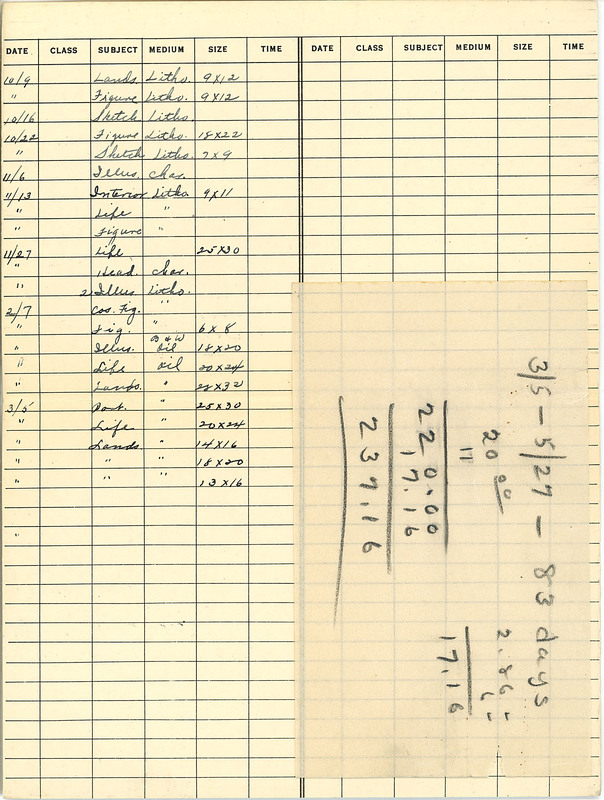 DATE CLASS SUBJECT MEDIUM SIZE TIME DATE CLASS SUBJECT MEDIUM SIZE TIME
10/9 Lands. Litho. 9X12
" Figure Litho. 9X12
10/16 Sketch Litho.
10/22 Figure Litho. 18X22
" Sketch Litho. 7X9
11/6 Illus. Char.
11/13 Interior Litho 9X11
" Life "
" Figure "
11/27 Life 25X30
" Head. Char.
" 2 Illus Litho.
2/7 Cos. Fig. "
" Fig. " 6X8
" Illus. B & W oil 18X20
" Life oil 20X24
" Lands. " 32
3/5 Port. " 25X30
" Life " 20X24
" Lands " 14X16
" " " 18X20
" " " 13X16
"
3/5 - 5/27 - 83 days
20 00
11
220.00
17.16
237.16
2.86
6
17.16